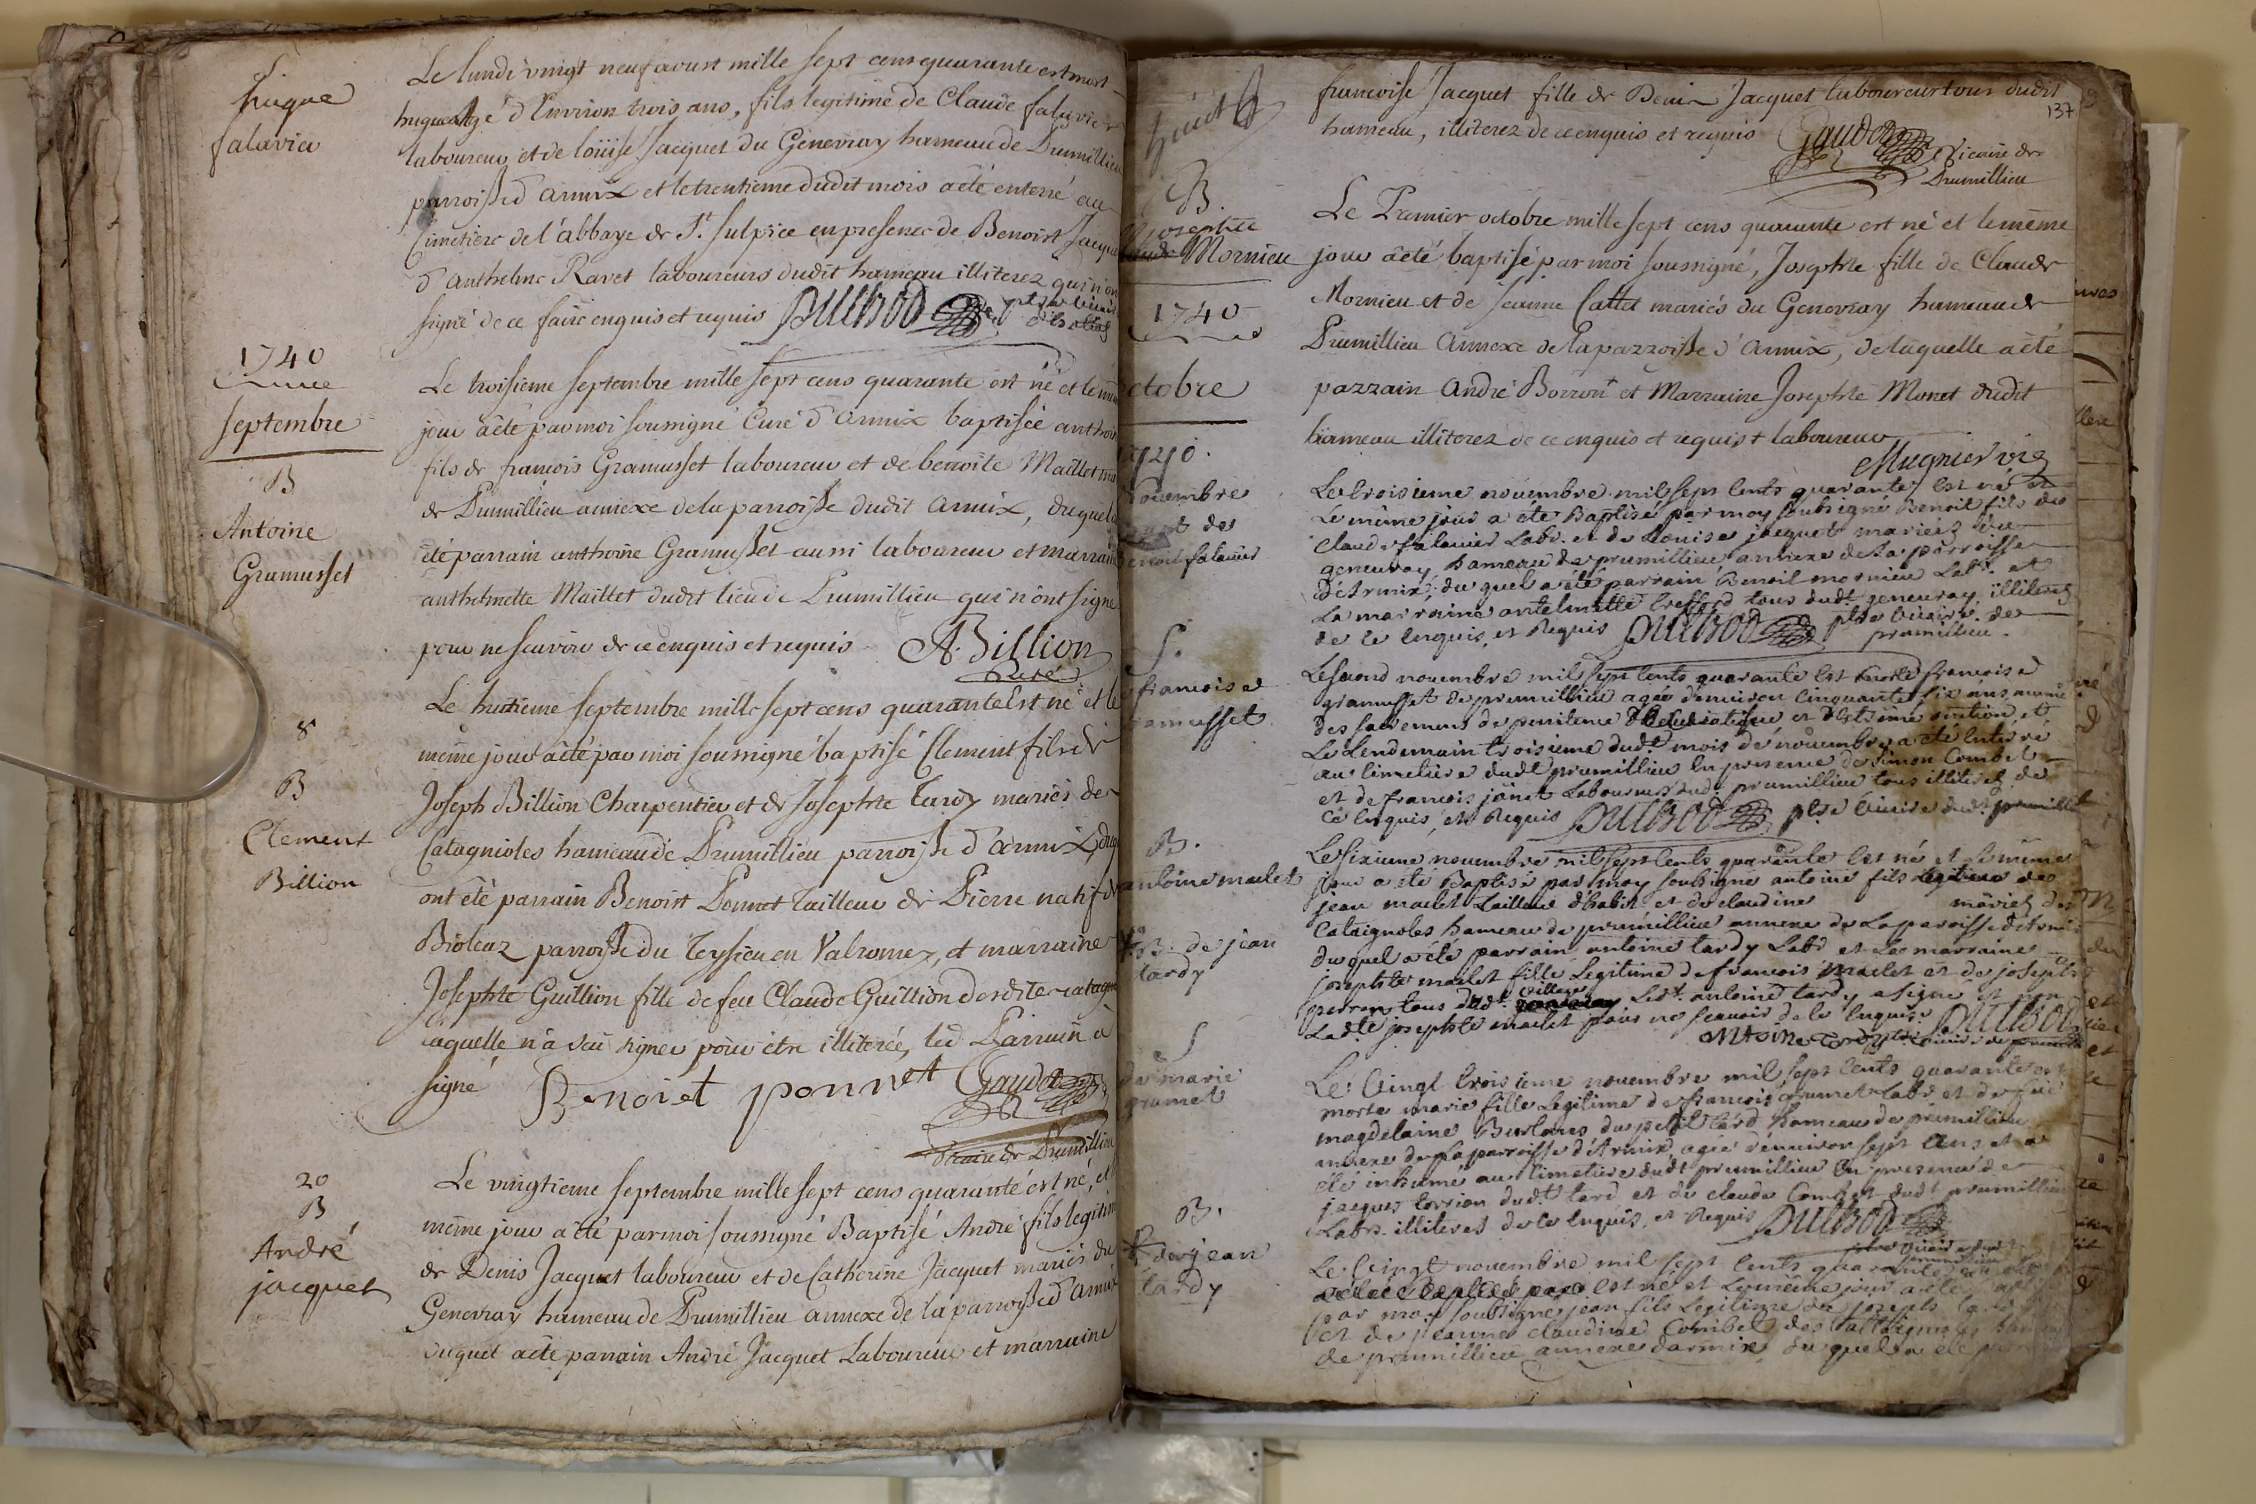 hugue
falavier
Le lundi vingt neuf aoust mille sept cens quarante est mort
hugue agé d'Environ trois ans, fils legitime de Claude falavier
laboureur et de loüise Jacquet du Genevray hameau de Prumillieu
parroisse d'armix et le trentieme dudit mois a été enterré au
Cimetiere de l'abbaye de St. Sulpice en presence de Benoist Jacquet
d'anthelme Ravet laboureurs dudit hameau illiterez qui n'ont
signé de ce faire enquis et requis
1740
septembre
B
Antoine
Gramusset
Le troisieme septembre mille sept cens quarante est né et le même
jour a été par moi soussigné Curé d'armix baptisée anthoine
fils de francois Gramusset laboureur et de benoite Maillet
de Prumillieu annexe de la parroisse dudit armix, duquel a
été parrain anthoine Gramusset aussi laboureur et marraine
anthelmette Maillet dudit lieu de Prumillieu qui n'ont signé
pour ne scavoir de ce enquis et requis A. Billion
Curé
8
B
Clement
Billion
Le huitieme septembre mille sept cens quarante Est né et le
même jour a été par moi soussigné baptisé Clement fils de
Joseph Billion Charpentier et de Josephte tardy mariés de
Catagnioles hameau de Prumillieu parroisse d'armix,
ont été parrain Benoist Ponnet tailleur de Pierre natif de
Bioleaz parroisse du Teysieu en Valromey, et marraine
Josephte Guillion fille de feu Claude Guillion desdites
laquelle n'a sçü signer pour etre illiterée, led Parrain a
signé Benoist ponnet Gaudet
Vicaire de Prumillieu
20
B
André
jacquet
Le vingtieme septembre mille sept cens quarante est né, et
même jour a été par moi soussigné Baptisé André fils legitime
de Denis Jacquet laboureur et de Catherine Jacquet mariés du
Genevray hameau de Prumillieu annexe de la parroisse d'armix
duquel a été parrain André Jacquet Laboureur et marraine
137
francoise Jacquet fille de Denis Jacquet laboureur tous dudit
hameau, illiterez de ce enquis et requis Gaudet
Vicaire de
Prumillieu
B.
Josephte
Mornieu
1740
octobre
Le Premier octobre mille sept cens quarante est né et le même
jour a été baptisé par moi soussigné, Josephte fille de Claude
Mornieu et de Jeanne Cattet mariés du Genevray hameau de
Prumillieu Annexe de la parroisse d'Armix, de laquelle a été
parrain André Borron+ et Marraine Josephte Monet dudit
hameau illiterez de ce enquis et requis + laboureur
Mugnier vic
1740.
Novembre
benoit falavier
Le troisieme novembre mil sept cents quarante est né et
Le même jour a ete Baptisé par moy soubsigné Benoit fils de
Claude falavier Labr. et de Louise jacquet mariéz du
geneuray hameau de prumillieu annexe de la parroisse
d'Armix, du quel a été parrain Benoit mornieu Labr. et
La marraine antelmette tous dudt. geneuray, illiterez
de ce Enquis, et Requis
ptre Vicaire de
prumillieu.
S.
francoise
gramusset
Le second novembre mil sept cents quarante est morte francoise
gramusset de prumillieu agée d'environ Cinquante six ans munie
des sacrements de penitence
Le Lendemain troisieme dudt. mois de novembre a été Enterré
au Cimetiere dudt prumillieu En presence de Simon Combet
et de francois jânet Laboureurs dudt prumillieu tous illiterez de
Ce Enquis, et Requis ptre Vicaire dudt. prumillieu
B.
antoine maclet
Le sixieme novembre mil sept cents quarante est né et le même
jour a eté Baptisé par moy soubsigné antoine fils Legitime de
jean maclet tailleur d'habit et de claudine mariéz des
Cataignoles hameau de prumillieu annexe de La paroisse d'Armix
du quel a été parrain antoine tardy Labr et La marraine
josephte maclet fille Legitime de francois maclet et de josephte
perron tous dudt. village Ledt. antoine tardy a signé et non
Ladte josephte maclet pour ne scavoir de ce Enquise
antoine tardy
B. de jean
tardy
S
marie
grumet
Le Vingt troisieme novembre mil sept cents quarante est
morte marie fille Legitime de francois grumet Labr. et de feüe
magdelaine du petit tard hameau de prumillieu
annexe de La parroisse d'Armix, agée d'environ sept ans et a
été inhumé au Cimetiere dudt prumillieu En presence de
jacques torrion dudt. tard et de claude Combet dudt prumillieu
Labrs. illiterés de ce Enquis, et Requis
B.
de jean
tardy
Le Vingt novembre mil sept cents quarante
est né et Le même jour a été
par moy soubsigné jean fils Legitime de joseph tardy
et de jeanne claudine Combet des Cattaignoles
de prumillieu annexe d'armix, du quel a été